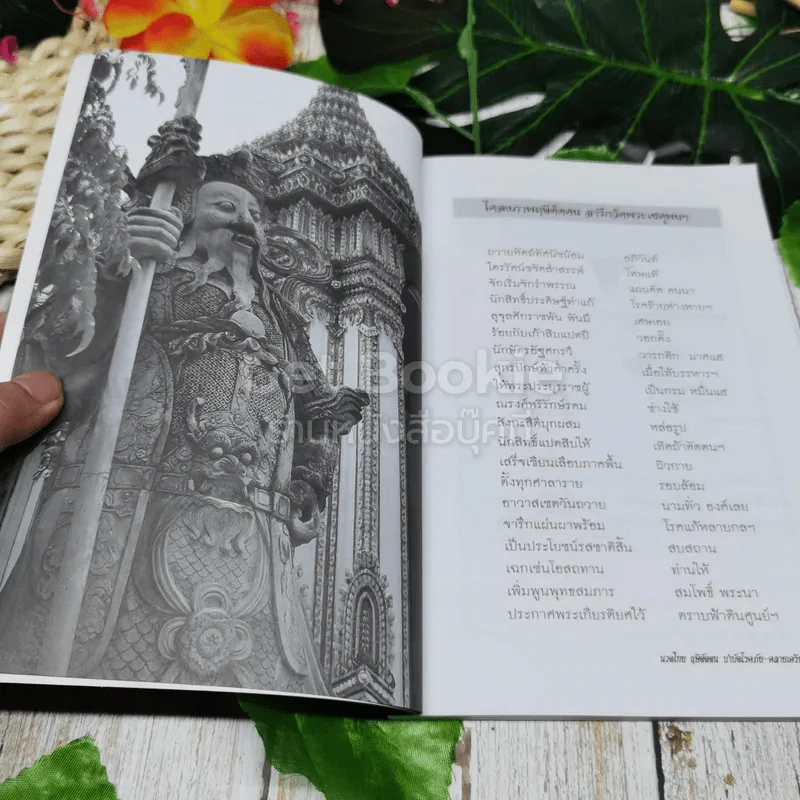 โคลงภาพฤษีดัดตน จารึกวัดพระเชตุพนฯ
ถวายหัตถ์ทัศนัขน้อม อภิวันท์
ไตรรัตน์ขจัดสำสรรพ์ โทษแท้
จักเริ่มจักรำพรรณ แถบดัด ตนนา
นักสิทธิ์ประดิษฐ์ท่าแก้ โรคร้ายห่างหายฯ
ลุจุลศักราชพัน พันมี เศษเฮย
ร้อยกับเก้าสิบแปดปี วอกตั้ง
นักษัตรอัฐศกรวี วารกติก มาศแฮ
ศุกรปักษ์ห้าค่ำครั้ง เมื่อไท้บรรหารฯ
ให้พระประยุราชผู้ เป็นกรม หมื่นแฮ
ณรงค์หริรักษ์รดม ช่างใช้
สังกะสีดีบุกผสม หล่อรูป
นักสิทธิ์แปดสิบให้ เทิดถ้าดัดตนฯ
เสร็จเขียนเลือบภาคพื้น ผิวกาย
ตั้งทุกศาลาราย รอบล้อม
อาวาสเชตวันถวาย นามทั่ว องค์เฮย
จารึกแผ่นผาพร้อม โรคแก้หลายกลฯ
เป็นประโยชน์รสชาติสิ้น สบสถาน
เฉกเช่นโอสถทาน ท่านให้
เพิ่มพูนพุทธสมภาร สมโพธิ์ พระนา
ประกาศพระเกียรติยศไว้ ตราบฟ้าดินศูนย์ฯ
Get Bookie
ร้านหนังสือบุ๊คกี้
นวดไทย ฤษีดัดตน บำบัดโรคภัย